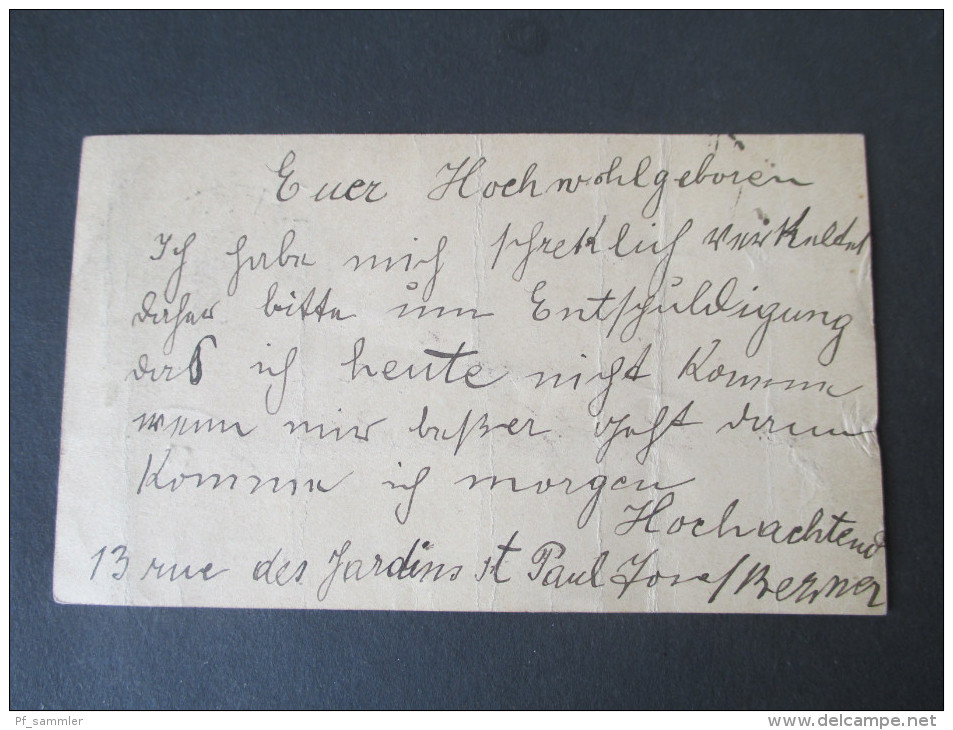 Euer Hochwohlgeboren
Ich habe mich schreklich verkeltet
daher bitte um Entschuldigung
daß ich heute nicht komme
wenn mir beßer geht dann
komme ich morgen
Hochachtend
13 rue des Jardins st Paul Josef Berner
Pf_sammler
www.delcampe.net